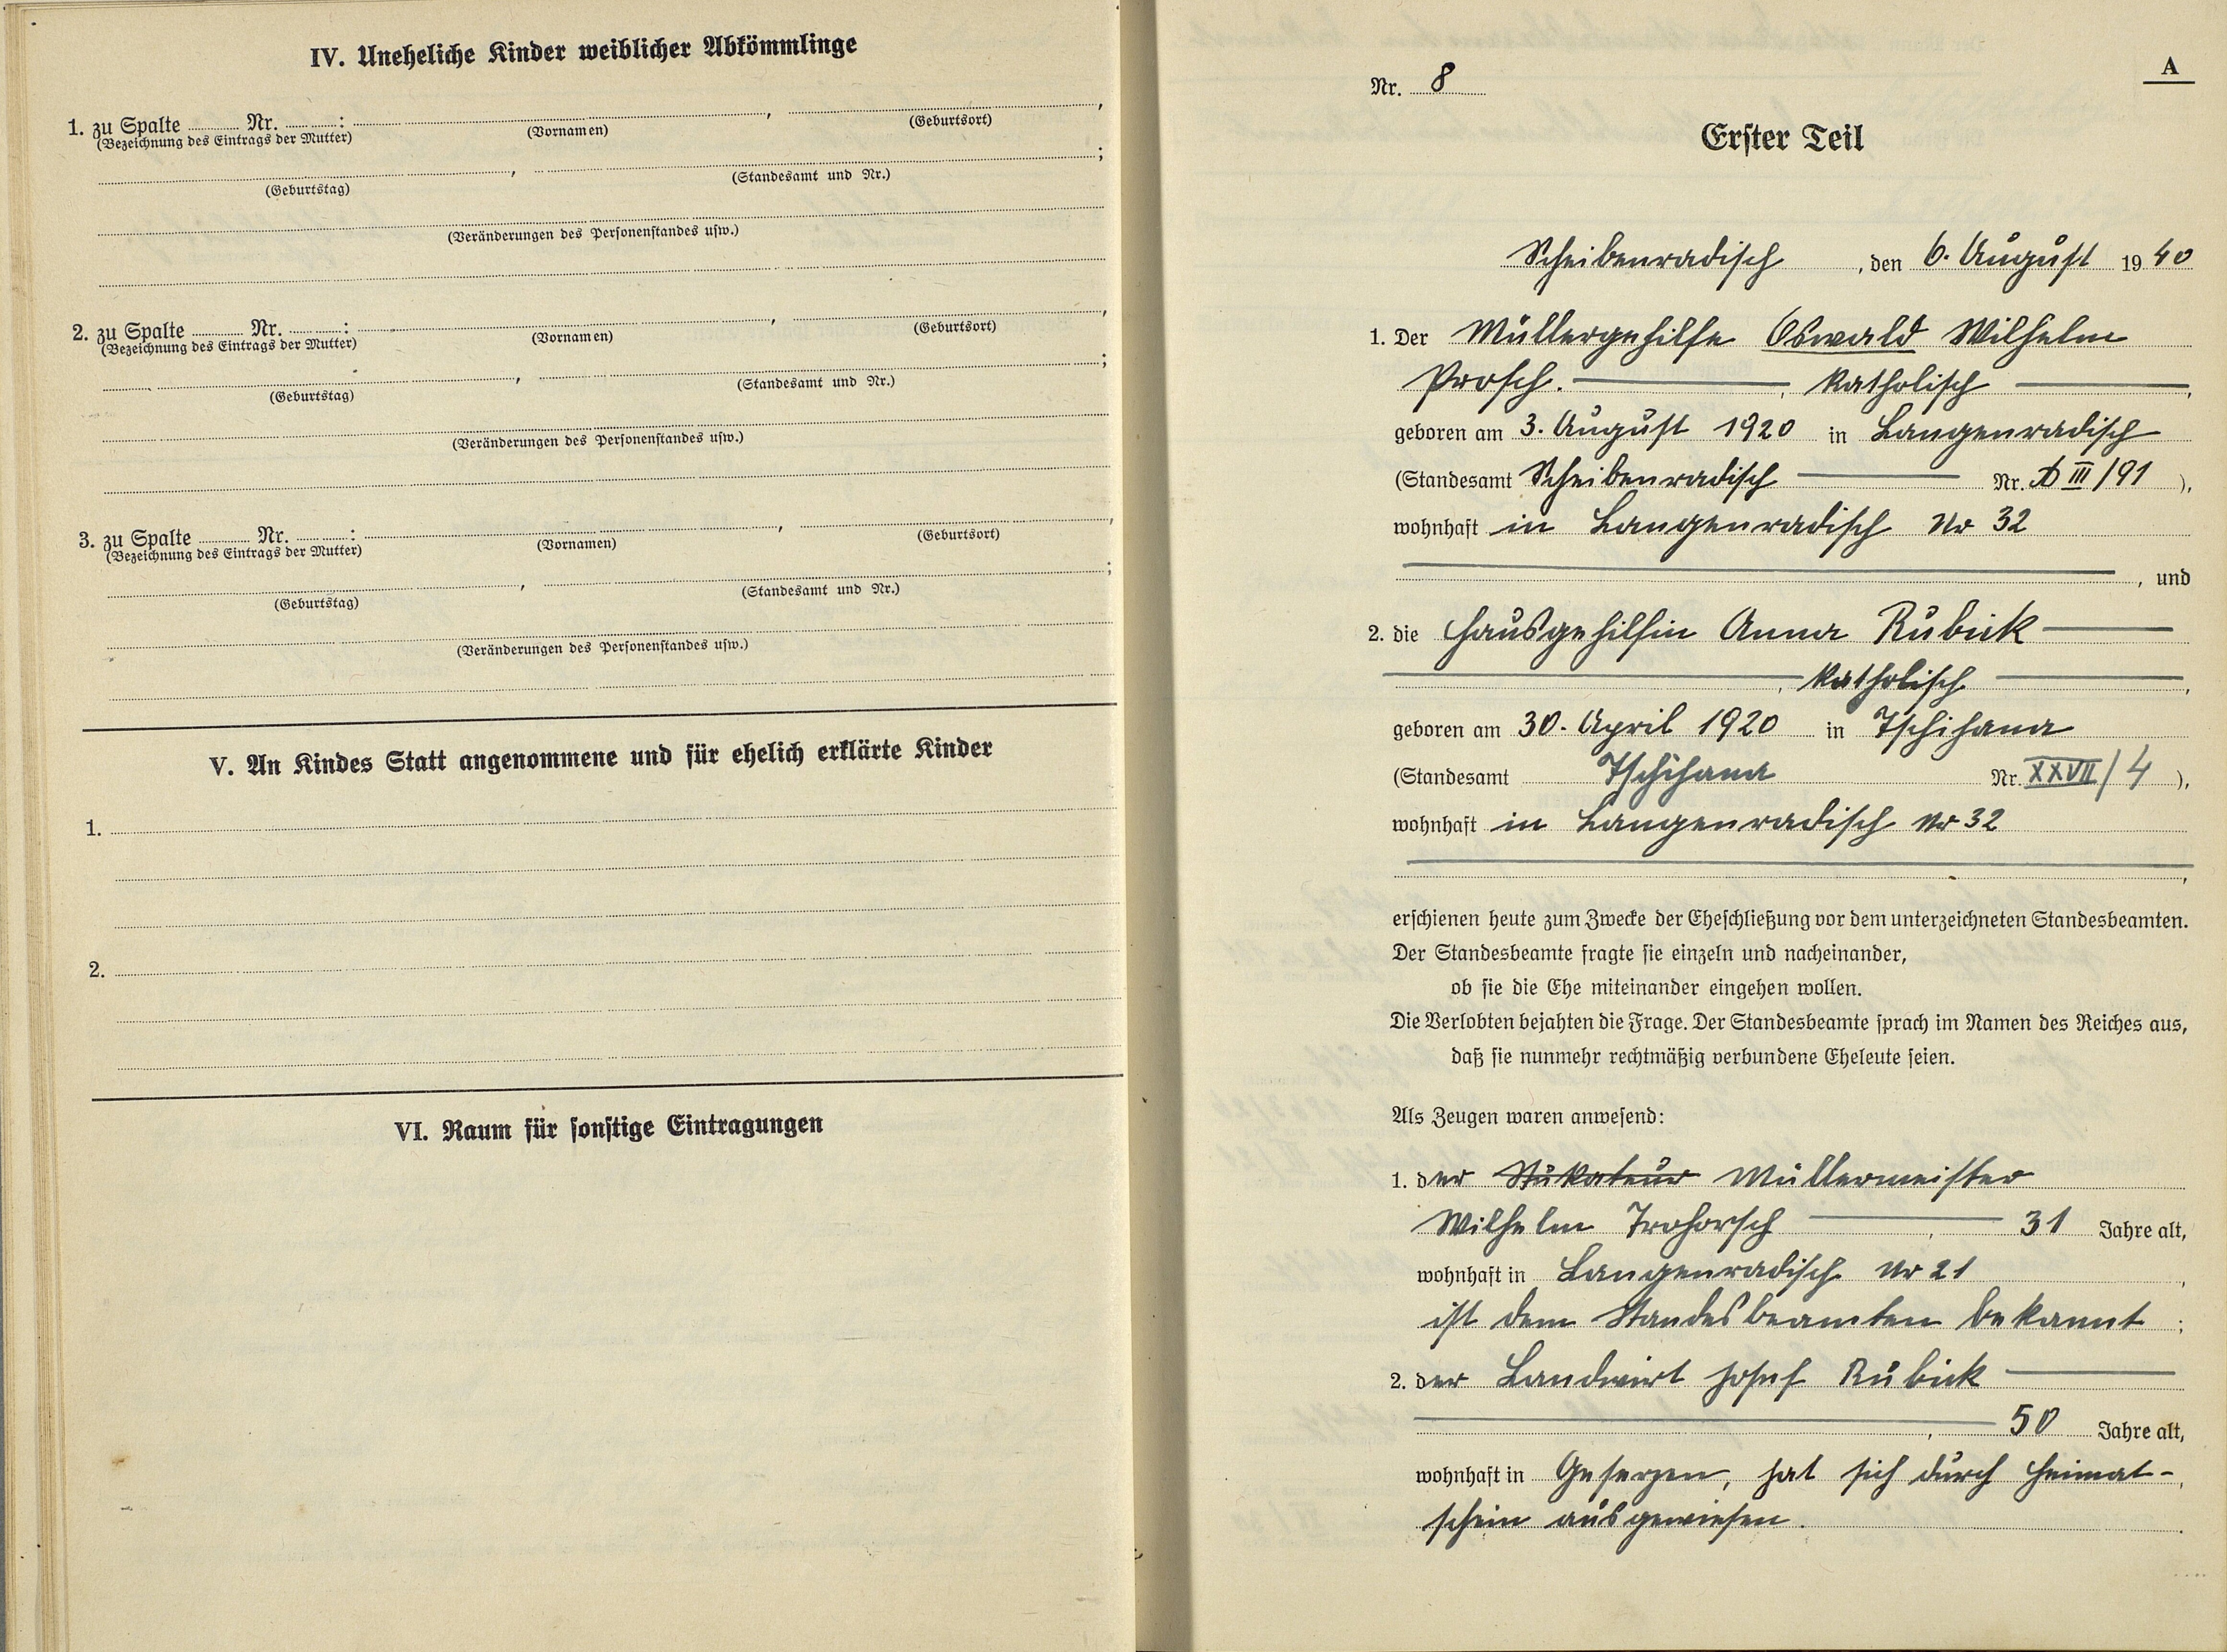 IV. Uneheliche Kinder weiblicher Abkömmlinge
1. zu Spalte Nr. : , ,
(Bezeichnung des Eintrags der Mutter) (Vornamen) (Geburtsort)
, ;
(Geburtstag) (Standesamt und Nr.)
(Veränderungen des Personenstandes usw.)
2. zu Spalte Nr. : , ,
(Bezeichnung des Eintrags der Mutter) (Vornamen) (Geburtsort)
, ;
(Geburtstag) (Standesamt und Nr.)
(Veränderungen des Personenstandes usw.)
3. zu Spalte Nr. : , ,
(Bezeichnung des Eintrags der Mutter) (Vornamen) (Geburtsort)
, ;
(Geburtstag) (Standesamt und Nr.)
(Veränderungen des Personenstandes usw.)
V. An Kindes Statt angenommene und für ehelich erklärte Kinder
1.
2.
VI. Raum für sonstige Eintragungen
A
Nr. 8
Erster Teil
Scheibenradisch, den 6. August 1940
1. Der Müllergehilfe Oswald Wilhelm
Prosch. , katholisch ,
geboren am 3. August 1920 in Langenradisch
(Standesamt Scheibenradisch Nr. A III/91 ),
wohnhaft in Langenradisch Nr 32
, und
2. die Hausgehilfin Anna Rubick
, katholisch ,
geboren am 30. April 1920 in Tschihana
(Standesamt Tschihana Nr. XXVII/4 ),
wohnhaft in Langenradisch Nr 32
,
erschienen heute zum Zwecke der Eheschließung vor dem unterzeichneten Standesbeamten.
Der Standesbeamte fragte sie einzeln und nacheinander,
ob sie die Ehe miteinander eingehen wollen.
Die Verlobten bejahten die Frage. Der Standesbeamte sprach im Namen des Reiches aus,
daß sie nunmehr rechtmäßig verbundene Eheleute seien.
Als Zeugen waren anwesend:
1. der Stukateur Müllermeister
Wilhelm Trohorsch , 31 Jahre alt,
wohnhaft in Langenradisch Nr 21 ,
ist dem Standesbeamten bekannt ;
2. der Landwirt Josef Rubick
, 50 Jahre alt,
wohnhaft in Geserzen, hat sich durch Heimat-
schein ausgewiesen.